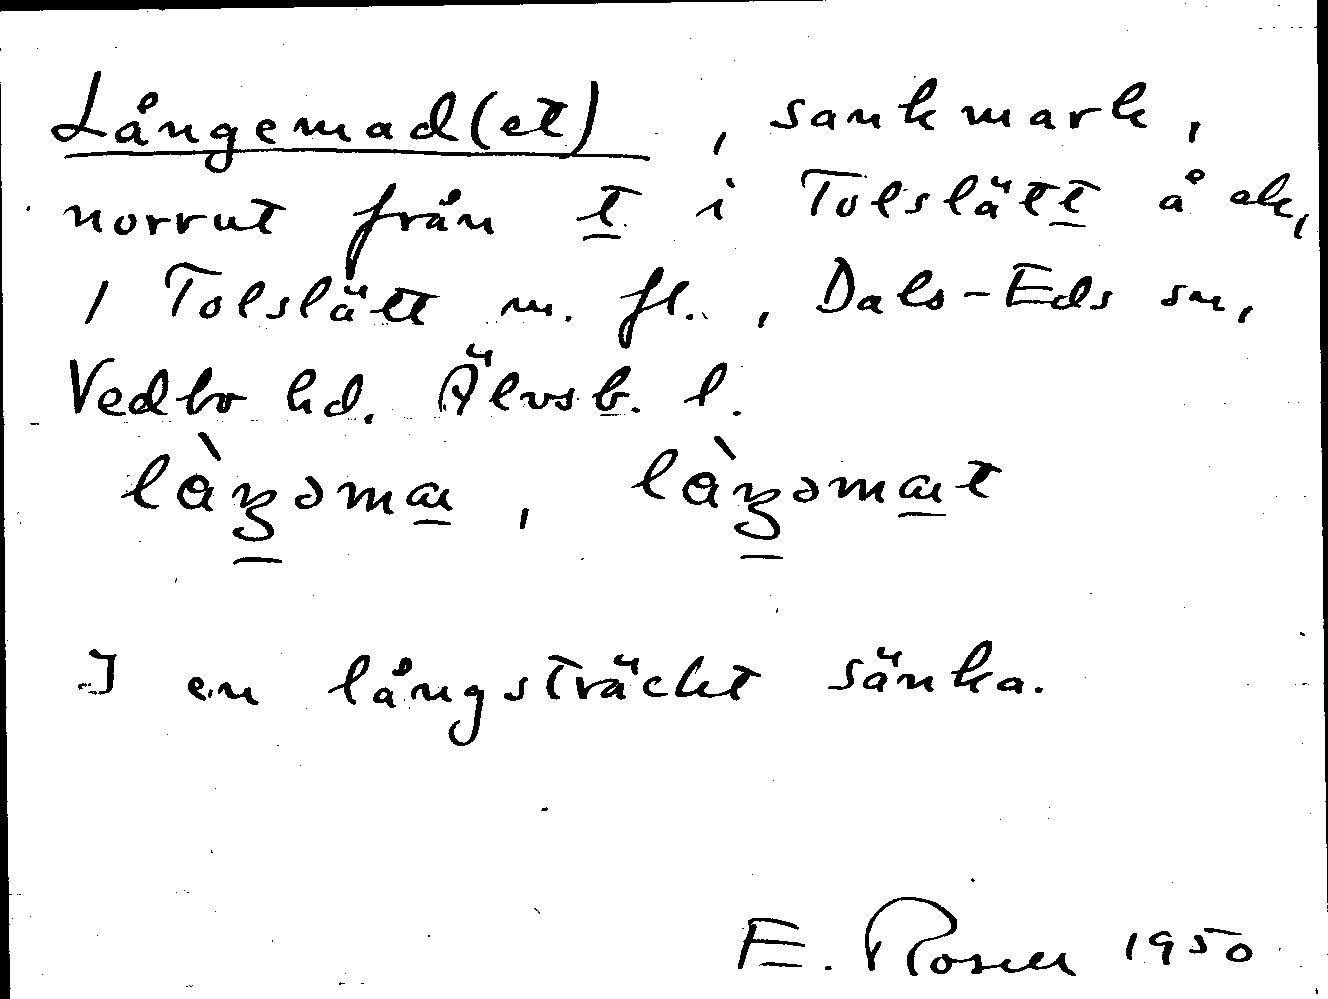 Långemad(et), sankmark,
norrut från t i Tolslätt å ek,
/ Tolslätt m. fl., Dals-Eds sn,
Vedbo hd. Älvsb. l.
I en långsträckt sänka.
E. Rosen 1950